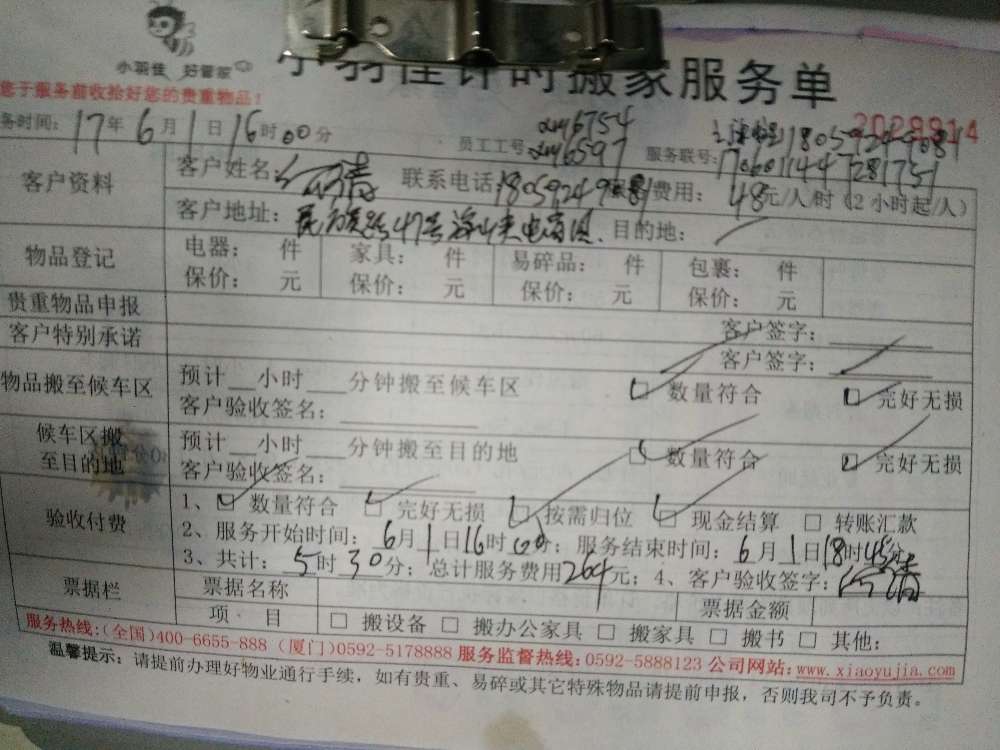 小羽佳 好管家
小羽佳计时搬家服务单
您于服务前收拾好您的贵重物品！
2029914
务时间：17年6月1日16时00分 员工工号：xm6754 xm6597 服务联号：
客户资料 客户姓名： 联系电话： 费用：48元/人/时（2小时起/人）
客户地址： 目的地：
物品登记 电器： 件 家具： 件 易碎品： 件 包裹： 件
保价： 元 保价： 元 保价： 元 保价： 元
贵重物品申报 客户签字：
客户特别承诺 客户签字：
物品搬至候车区 预计__小时___分钟搬至候车区 □ 数量符合 □ 完好无损
客户验收签名：
候车区搬至目的地 预计__小时___分钟搬至目的地 □ 数量符合 □ 完好无损
客户验收签名：
验收付费 1、□ 数量符合 □ 完好无损 □ 按需归位 □ 现金结算 □ 转账汇款
2、服务开始时间：6月1日16时00分；服务结束时间：6月1日18时45分
3、共计：5时30分；总计服务费用264元；4、客户验收签字：
票据栏 票据名称 票据金额
项 目 □ 搬设备 □ 搬办公家具 □ 搬家具 □ 搬书 □ 其他：
服务热线：(全国)400-6655-888 (厦门)0592-5178888 服务监督热线：0592-5888123 公司网站：www.xiaoyujia.com
温馨提示：请提前办理好物业通行手续，如有贵重、易碎或其它特殊物品请提前申报，否则我司不予负责。